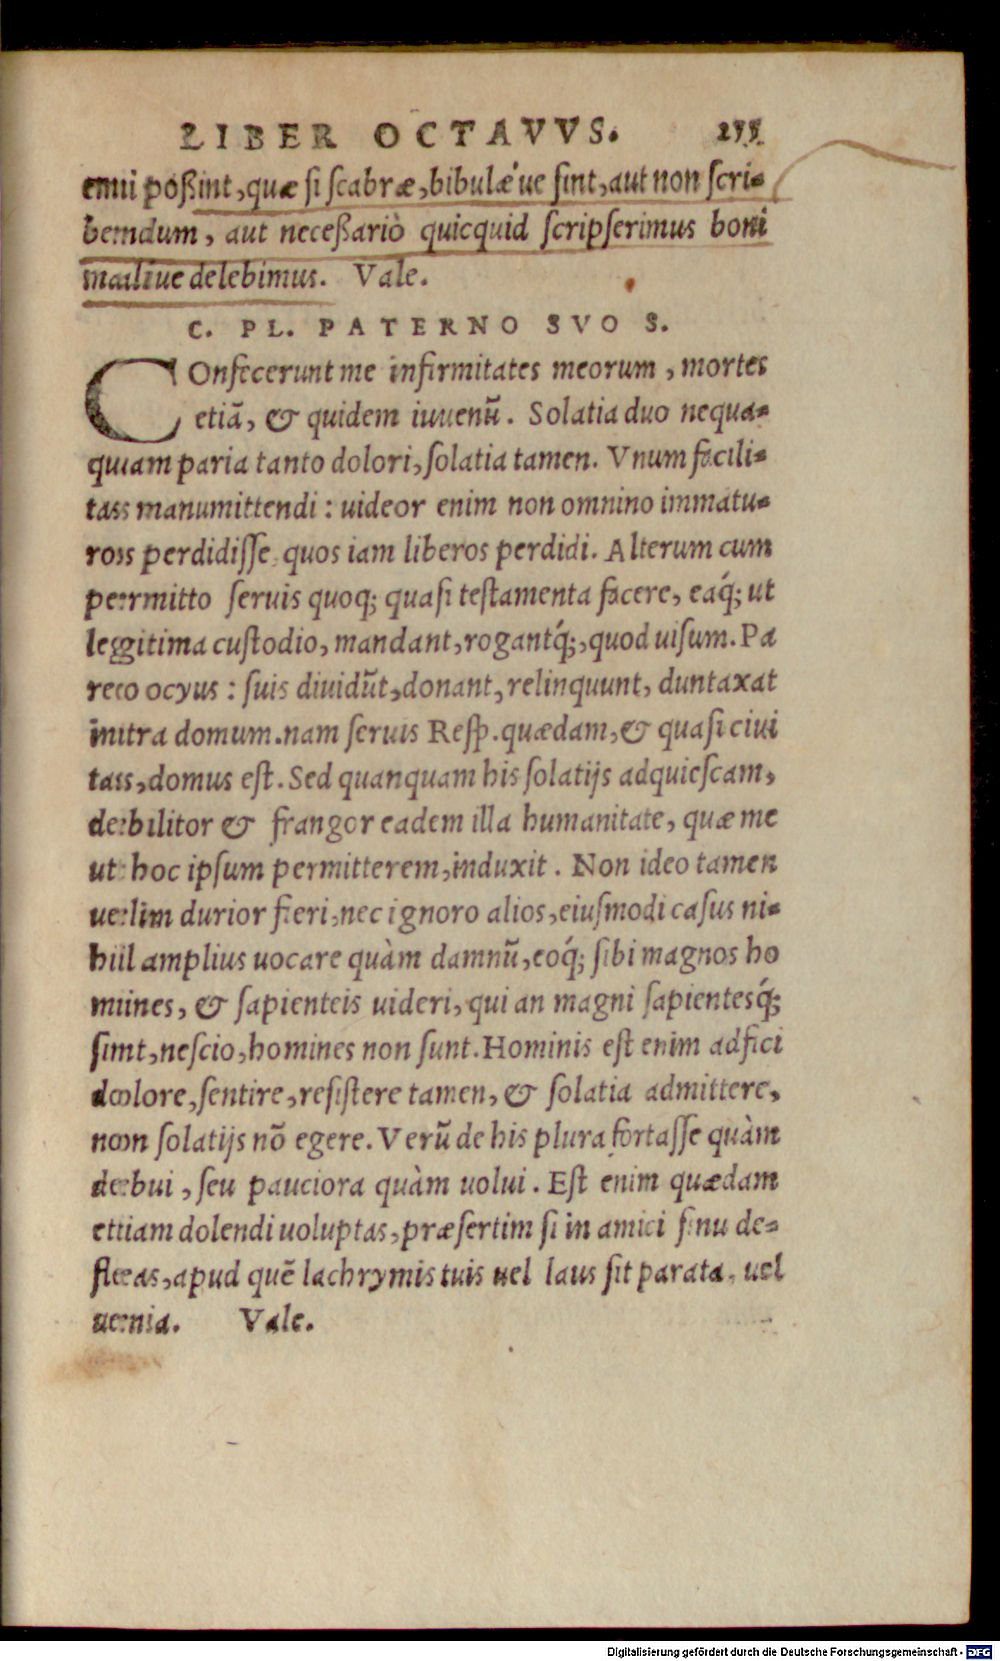 LIBER OCTAVVS. 255
emi poßint, quæ si scabræ, bibulæ´ue sint, aut non scri-
bendum, aut neceßariò quicquid scripserimus boni
maliue delebimus. Vale.
C. PL. PATERNO SVO S.
COnfecerunt me infirmitates meorum, mortes
etiã, & quidem iuuenũ. Solatia duo nequa-
quam paria tanto dolori, solatia tamen. Vnum facili-
tas manumittendi: uideor enim non omnino immatu-
ros perdidisse, quos iam liberos perdidi. Alterum cum
permitto seruis quoq; quasi testamenta facere, eaq́; ut
legitima custodio, mandant, rogantq́;, quod uisum. Pa
reo ocyus: suis diuidũt, donant, relinquunt, duntaxat
intra domum. nam seruis Resp. quædam, & quasi ciui
tas, domus est. Sed quanquam his solatijs adquiescam,
debilitor & frangor eadem illa humanitate, quæ me
ut hoc ipsum permitterem, induxit. Non ideo tamen
uelim durior fieri, nec ignoro alios, eiusmodi casus ni-
hil amplius uocare quàm damnũ, eoq́; sibi magnos ho
mines, & sapienteis uideri, qui an magni sapientesq́;
sint, nescio, homines non sunt. Hominis est enim adfici
dolore, sentire, resistere tamen, & solatia admittere,
non solatijs nõ egere. Verũ de his plura fortasse quàm
debui, seu pauciora quàm uolui. Est enim quædam
etiam dolendi uoluptas, præsertim si in amici sinu de-
fleas, apud quẽ lachrymis tuis uel laus sit parata, uel
uenia. Vale.
Digitalisierung gefördert durch die Deutsche Forschungsgemeinschaft - DFG